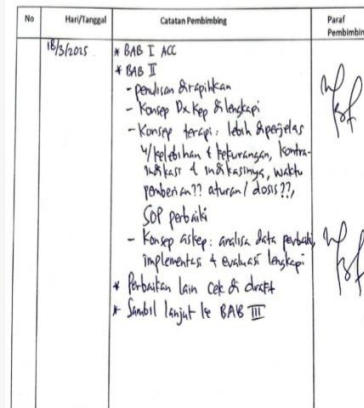 No Hari/Tanggal Catatan Pembimbing Paraf Pembimbin
18/3/2025 * BAB I ACC
* BAB II
- penulisan dirapihkan
- Konsep Dx Kep dilengkapi
- Konsep terapi: lebih diperjelas
u/kelebihan & kekurangan, kontra-
indikasi & indikasinya, waktu
pemberian?? aturan/dosis??,
SOP perbaiki
- Konsep askep: analisa data perbaiki,
implementasi & evaluasi lengkapi
* Perbaikan lain cek di draft
* Sambil lanjut ke BAB III